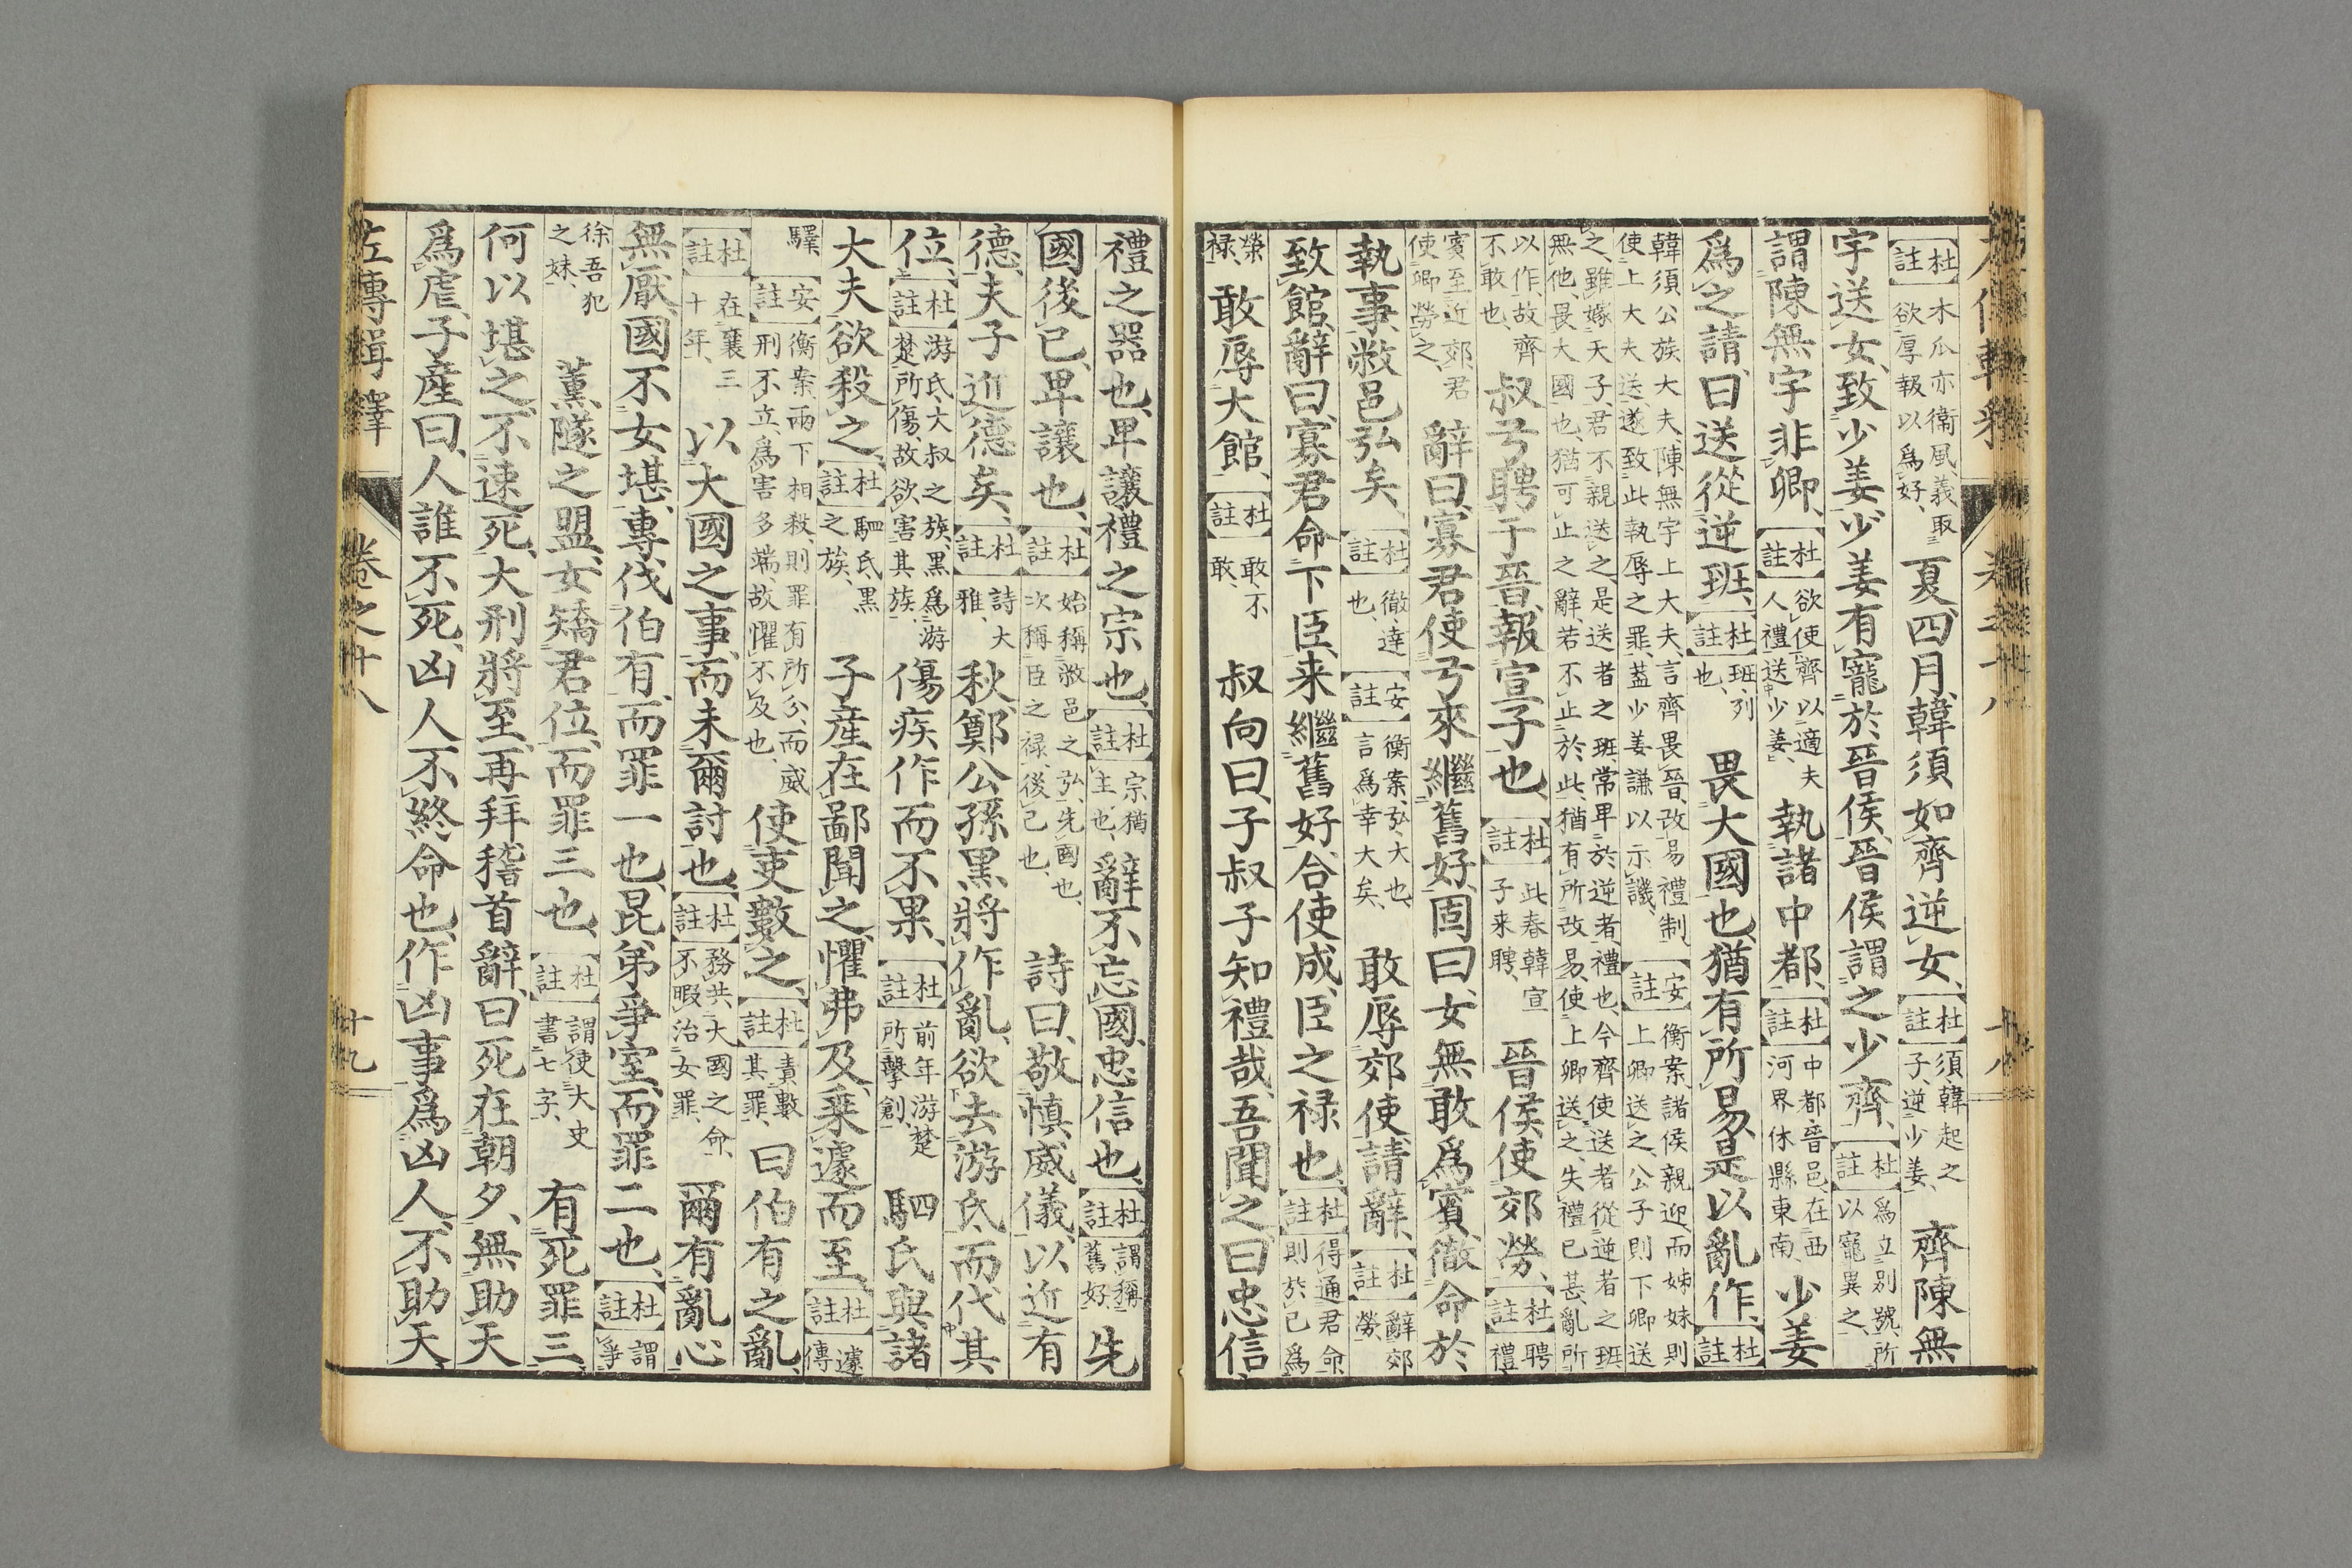 杜註木瓜亦衞風義取欲厚報以爲好、夏四月、韓須如齊逆女、杜註須、韓起之子、逆少姜、齊陳無
宇送女、致少姜、少姜有寵於晉侯、晉侯謂之少齊、杜註爲立別號、所以寵異之、
謂陳無宇非卿、杜註欲使齊以適夫人禮送少姜、執諸中都、杜註中都、晉邑、在西河界休縣東南、少姜
爲之請、曰送從逆班、杜註班、列也、畏大國也、猶有所易、是以亂作、杜註
韓須公族大夫、陳無宇上大夫、言齊畏晉、改易禮制、使上大夫送、遂致此執辱之罪、蓋少姜謙以示譏、安註衡案、諸侯親迎、而姊妹則上卿送之、公子則下卿送
之、雖嫁天子、君不親送之、是送者之班、常卑於逆者、禮也、今齊使送者從逆者之班無他、畏大國也、猶可止之辭、若不止於此、猶有所改易、使上卿送之、失禮已甚、亂所
以作、故齊不敢也、叔弓聘于晉、報宣子也、杜註此春韓宣子来聘、晉侯使郊勞、杜註聘禮
賓至近郊、君使卿勞之、辭曰、寡君使弓來繼舊好、固曰、女無敢爲賓、徹命於
執事、敝邑弘矣、杜註徹、達也、安註衡案、弘、大也、言爲幸大矣、敢辱郊使、請辭、杜註辭郊勞、
致館、辭曰、寡君命下臣、来繼舊好、好合使成、臣之禄也、杜註得通君命、則於己爲
榮禄、敢辱大館、杜註敢、不敢、叔向曰、子叔子知禮哉、吾聞之、曰忠信、
禮之器也、卑讓、禮之宗也、杜註宗猶主也、辭不忘國、忠信也、杜註謂稱舊好、先
國後己、卑讓也、杜註始稱敝邑之弘、先國也、次稱臣之禄、後己也、詩曰、敬慎威儀、以近有
德、夫子近德矣、杜註詩大雅、秋、鄭公孫黑將作亂、欲去游氏、而代其
位、杜註游氏、大叔之族、黑爲游楚所傷、故欲害其族、傷疾作而不果、杜註前年游楚所擊創、駟氏與諸
大夫欲殺之、杜註駟氏、黑之族、子産在鄙聞之、懼弗及、乗遽而至、杜註遽傳
驛、安註衡案、兩下相殺、則罪有所分、而威刑不立、爲害多端、故懼不及也、使吏數之、杜註責數其罪、曰伯有之亂、
杜註在襄三十年、以大國之事、而未爾討也、杜註務共大國之命、不暇治女罪、爾有亂心
無厭、國不女堪、專伐伯有、而罪一也、昆弟爭室、而罪二也、杜註謂爭
徐吾犯之妹、薰隧之盟、女矯君位、而罪三也、杜註謂使大史書七子、有死罪三、
何以堪之、不速死、大刑將至、再拜稽首辭、曰死在朝夕、無助天
爲虐、子産曰、人誰不死、凶人不終、命也、作凶事爲凶人、不助天、
左傳輯釋 卷之十八 十九